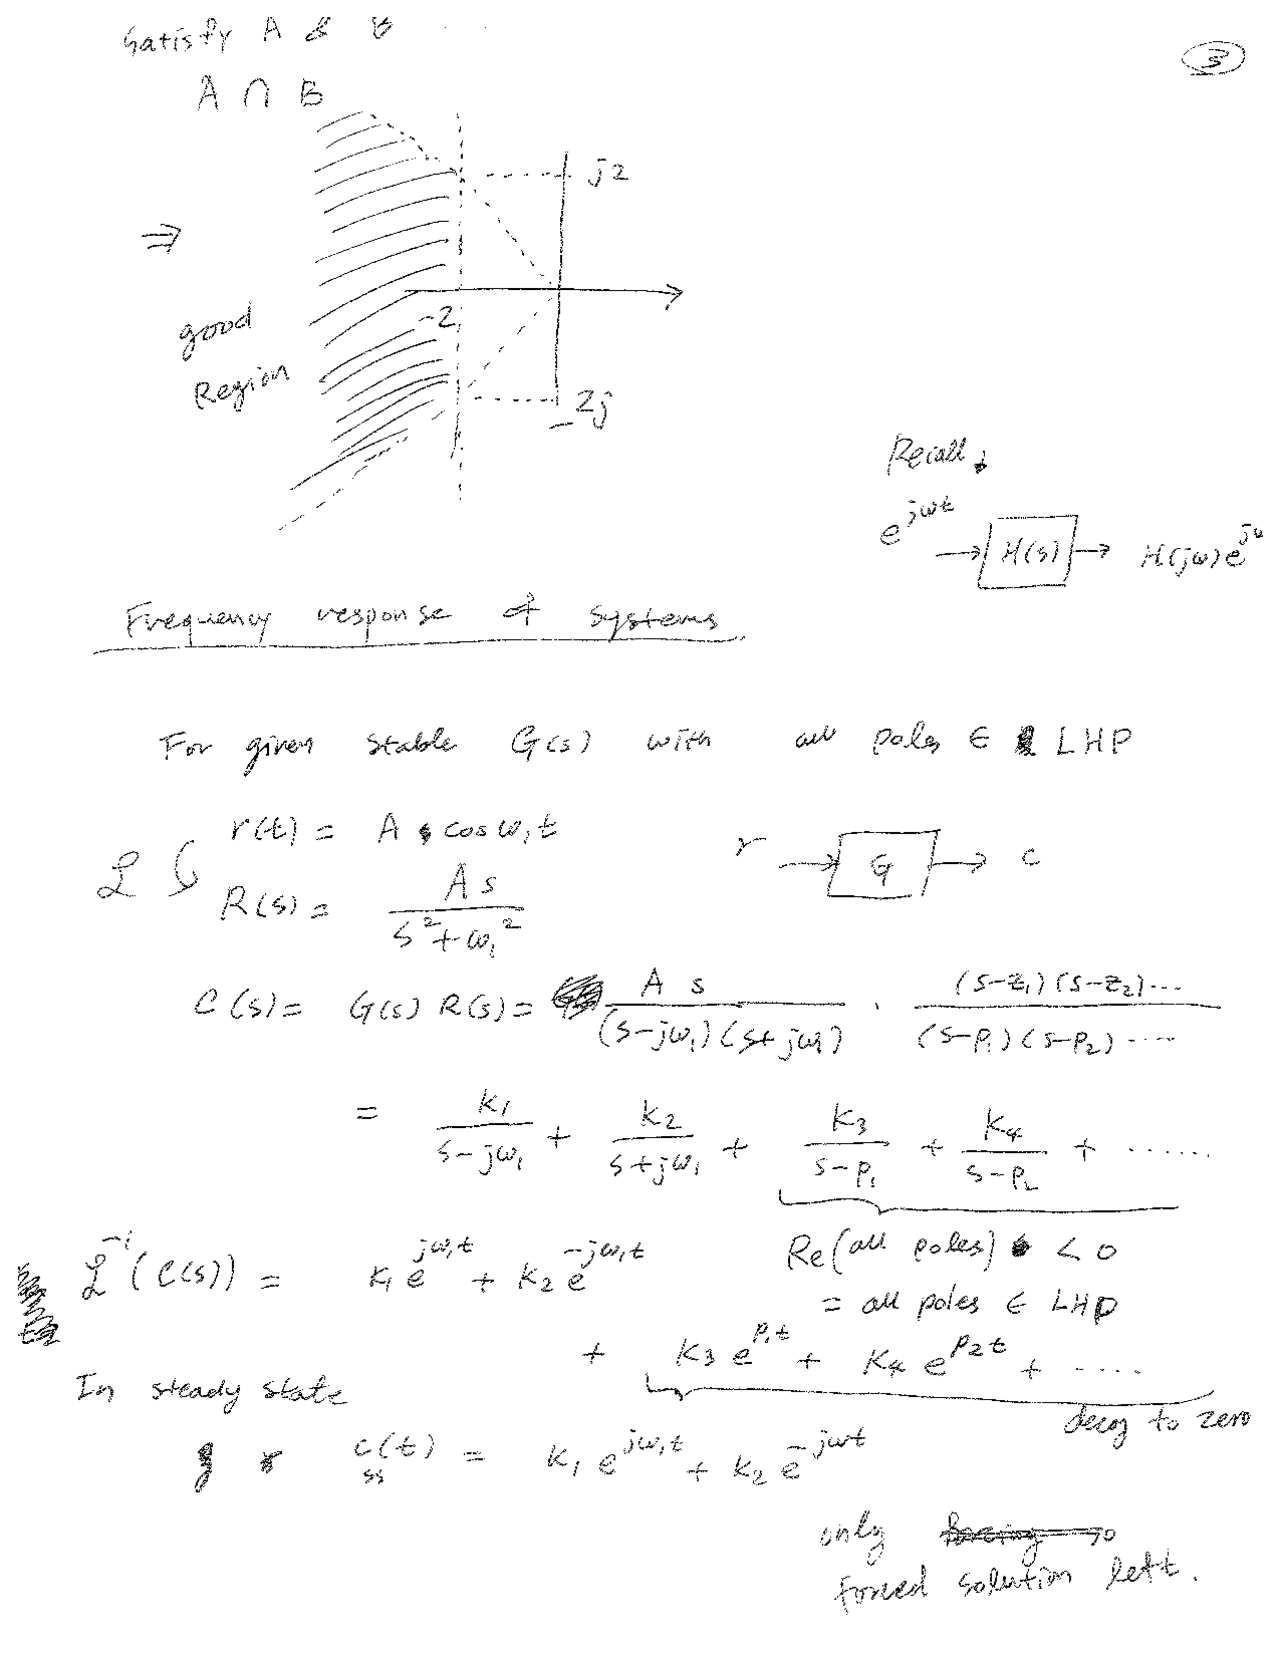 Satisfy A & B
3
A ∩ B
j2
⇒
-2
good
Region
-2j
Recall
e^{jωt} → H(s) → H(jω)e^{jω
Frequency response of systems
For given stable G(s) with all poles ∈ LHP
r(t) = A cos ω₁t
r → G → c
ℒ
R(s) = As / (s² + ω₁²)
C(s) = G(s) R(s) = A s / ((s-jω₁)(s+jω₁)) · (s-z₁)(s-z₂)... / ((s-p₁)(s-p₂)....)
= k₁/(s-jω₁) + k₂/(s+jω₁) + k₃/(s-p₁) + k₄/(s-p₂) + ......
ℒ⁻¹(C(s)) = k₁ e^{jω₁t} + k₂ e^{-jω₁t}
Re(all poles) < 0
= all poles ∈ LHP
+ k₃ e^{p₁t} + k₄ e^{p₂t} + ....
In steady state
decay to zero
c_{ss}(t) = k₁ e^{jω₁t} + k₂ e^{-jωt}
only
forced solution left.